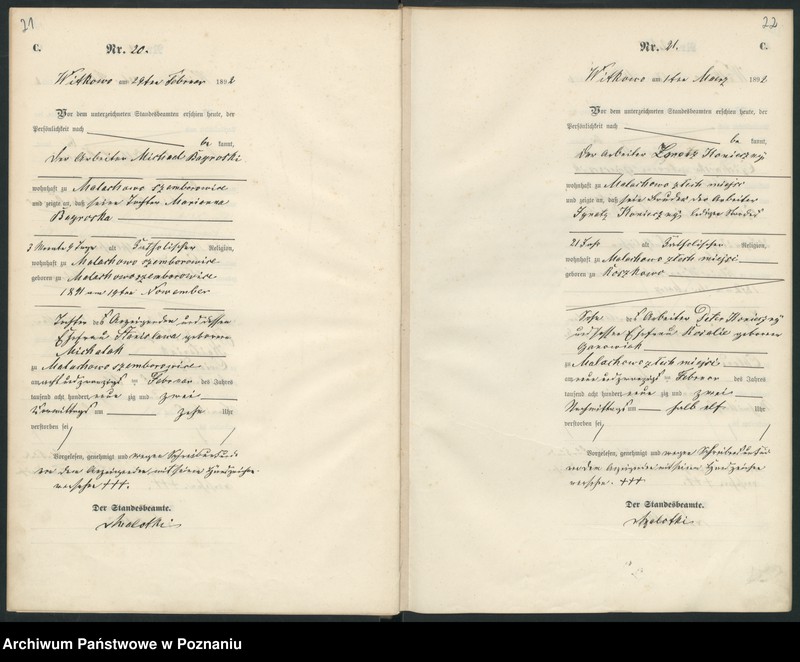 21
C.
Nr. 20.
Witkowo am 29ten Februar 1892
Vor dem unterzeichneten Standesbeamten erschien heute, der
Persönlichkeit nach
be kannt,
der Arbeiter Michael
wohnhaft zu Malachowo szemborowice
und zeigte an, daß seine Tochter Marianna
3 Monate Tage alt katholischer Religion,
wohnhaft zu Malachowo szemborowice
geboren zu Malachowo szemborowice
1891 am November
Tochter des Anzeigenden und dessen
Ehefrau Stanislawa geborene
Michalak
zu Malachowo szemborowice
am acht und zwanzigsten Februar des Jahres
tausend acht hundert neun zig und zwei
Vormittags um zehn Uhr
verstorben sei
Vorgelesen, genehmigt und wegen Schreibensunkunde
von dem Anzeigenden mit seinem Handzeichen
versehen +++.
Der Standesbeamte.
22
C.
Nr. 21.
Witkowo am 1ten Maerz 1892
Vor dem unterzeichneten Standesbeamten erschien heute, der
Persönlichkeit nach
be kannt,
der Arbeiter Ignatz Konieczny
wohnhaft zu Malachowo zlych miejsc
und zeigte an, daß sein Bruder der Arbeiter
Ignatz Konieczny, ledigen Standes
21 Jahr alt katholischer Religion,
wohnhaft zu Malachowo zlych miejsc
geboren zu
Sohn des Arbeiter Peter Konieczny
und dessen Ehefrau Rosalie geborene
zu Malachowo zlych miejsc
am neun und zwanzigsten Februar des Jahres
tausend acht hundert neun zig und zwei
Nachmittags um halb elf Uhr
verstorben sei
Vorgelesen, genehmigt und wegen Schreibensunkunde
von dem Anzeigenden mit seinem Handzeichen
versehen. +++
Der Standesbeamte.
Archiwum Państwowe w Poznaniu